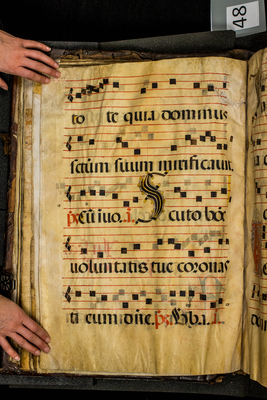 48
to te quia dominus
sctum suum mirificavit
ps. Cū ivo. i. Scuto bo
voluntatis tue coronas
ti eum dñe. ps. Vba. i.